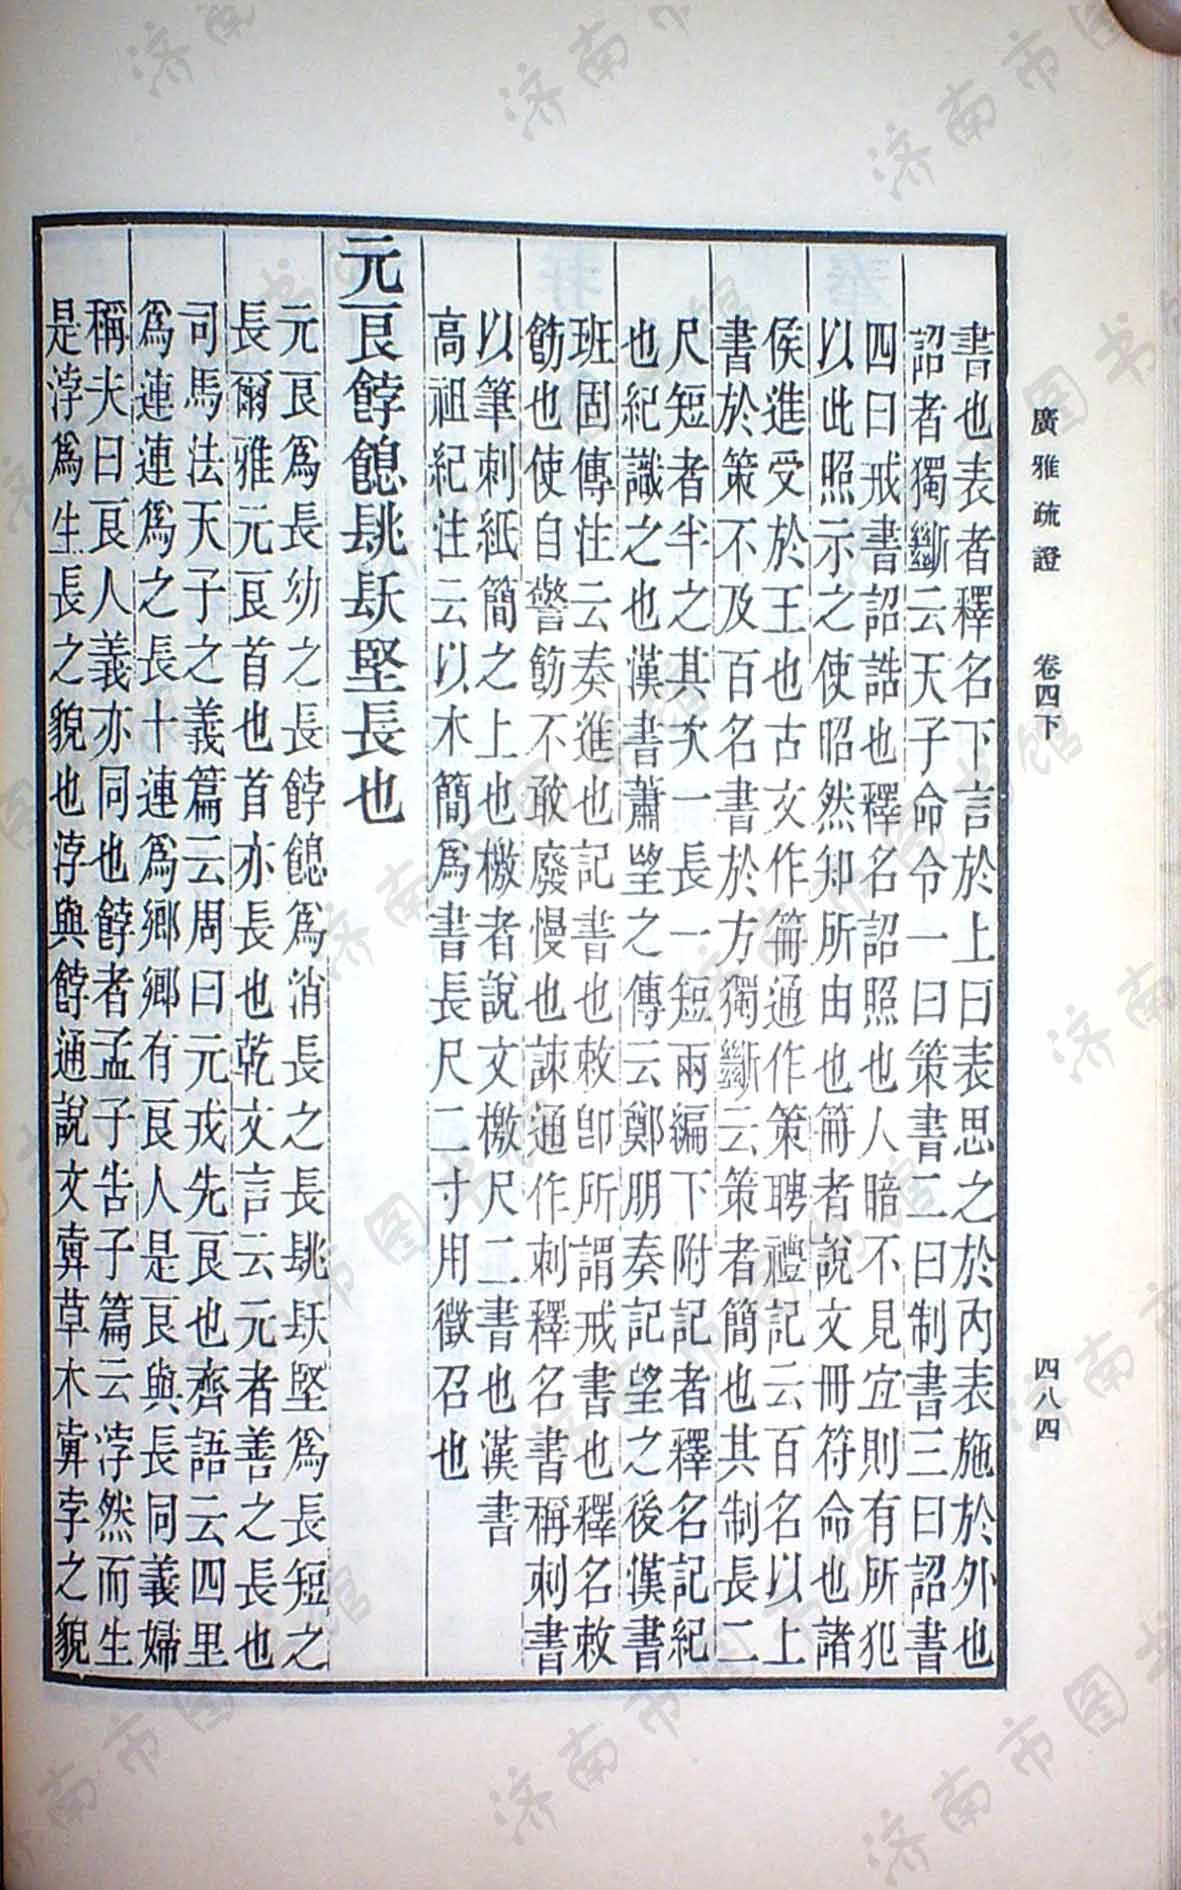 廣雅疏證　卷四下　四八四
書也表者釋名下言於上曰表思之於內表施於外也
詔者獨斷云天子命令一曰策書二曰制書三曰詔書
四曰戒書詔誥也釋名詔照也人暗不見宜則有所犯
以此照示之使昭然知所由也冊者說文冊符命也諸
侯進受於王也古文作笧通作策聘禮記云百名以上
書於策不及百名書於方獨斷云策者簡也其制長二
尺短者半之其次一長一短兩編下附記者釋名記紀
也紀識之也漢書蕭望之傳云鄭朋奏記望之後漢書
班固傳注云奏進也記書也敕卽所謂戒書也釋名敕
飭也使自警飭不敢廢慢也諫通作刺釋名書稱刺書
以筆刺紙簡之上也檄者說文檄尺二書也漢書
高祖紀注云以木簡爲書長尺二寸用徵召也
元良餑䭒䠷镺堅長也
元良爲長幼之長餑䭒爲消長之長䠷镺堅爲長短之
長爾雅元良首也首亦長也乾文言云元者善之長也
司馬法天子之義篇云周曰元戎先良也齊語云四里
爲連連爲之長十連爲鄉鄉有良人是良與長同義婦
稱夫曰良人義亦同也餑者孟子告子篇云浡然而生
是浡爲生長之貌也浡與餑通說文𣎵草木𣎵孛之貌